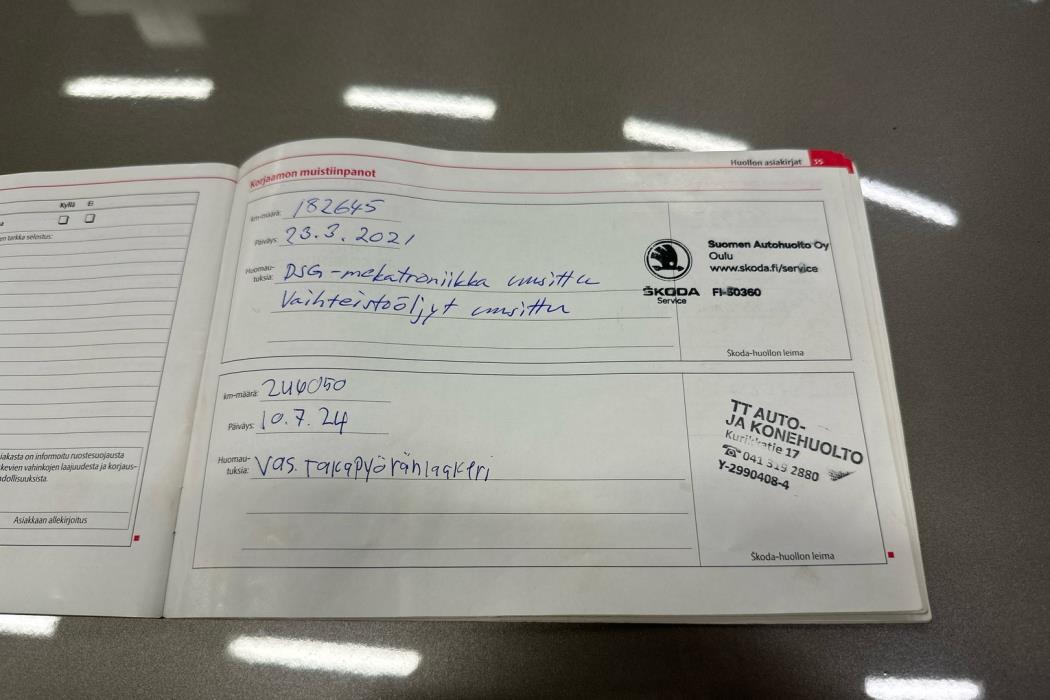 Kyllä Ei
en tarkka selostus:
iakasta on informoitu ruostesuojausta
kevien vahinkojen laajuudesta ja korjaus-
dollisuuksista.
Asiakkaan allekirjoitus
Huollon asiakirjat 35
Korjaamon muistiinpanot
km-määrä: 182645
Päiväys: 23.3.2021
Huomau-
tuksia: DSG-mekatroniikka uusittu
Vaihteistoöljyt uusittu
ŠKODA
Service
Suomen Autohuolto Oy
Oulu
www.skoda.fi/service
FI-50360
Škoda-huollon leima
km-määrä: 246050
Päiväys: 10.7.24
Huomau-
tuksia: Vas. Takapyöränlaakeri
TT AUTO-
JA KONEHUOLTO
Kurikkatie 17
☎ 041 319 2880
Y-2990408-4
Škoda-huollon leima